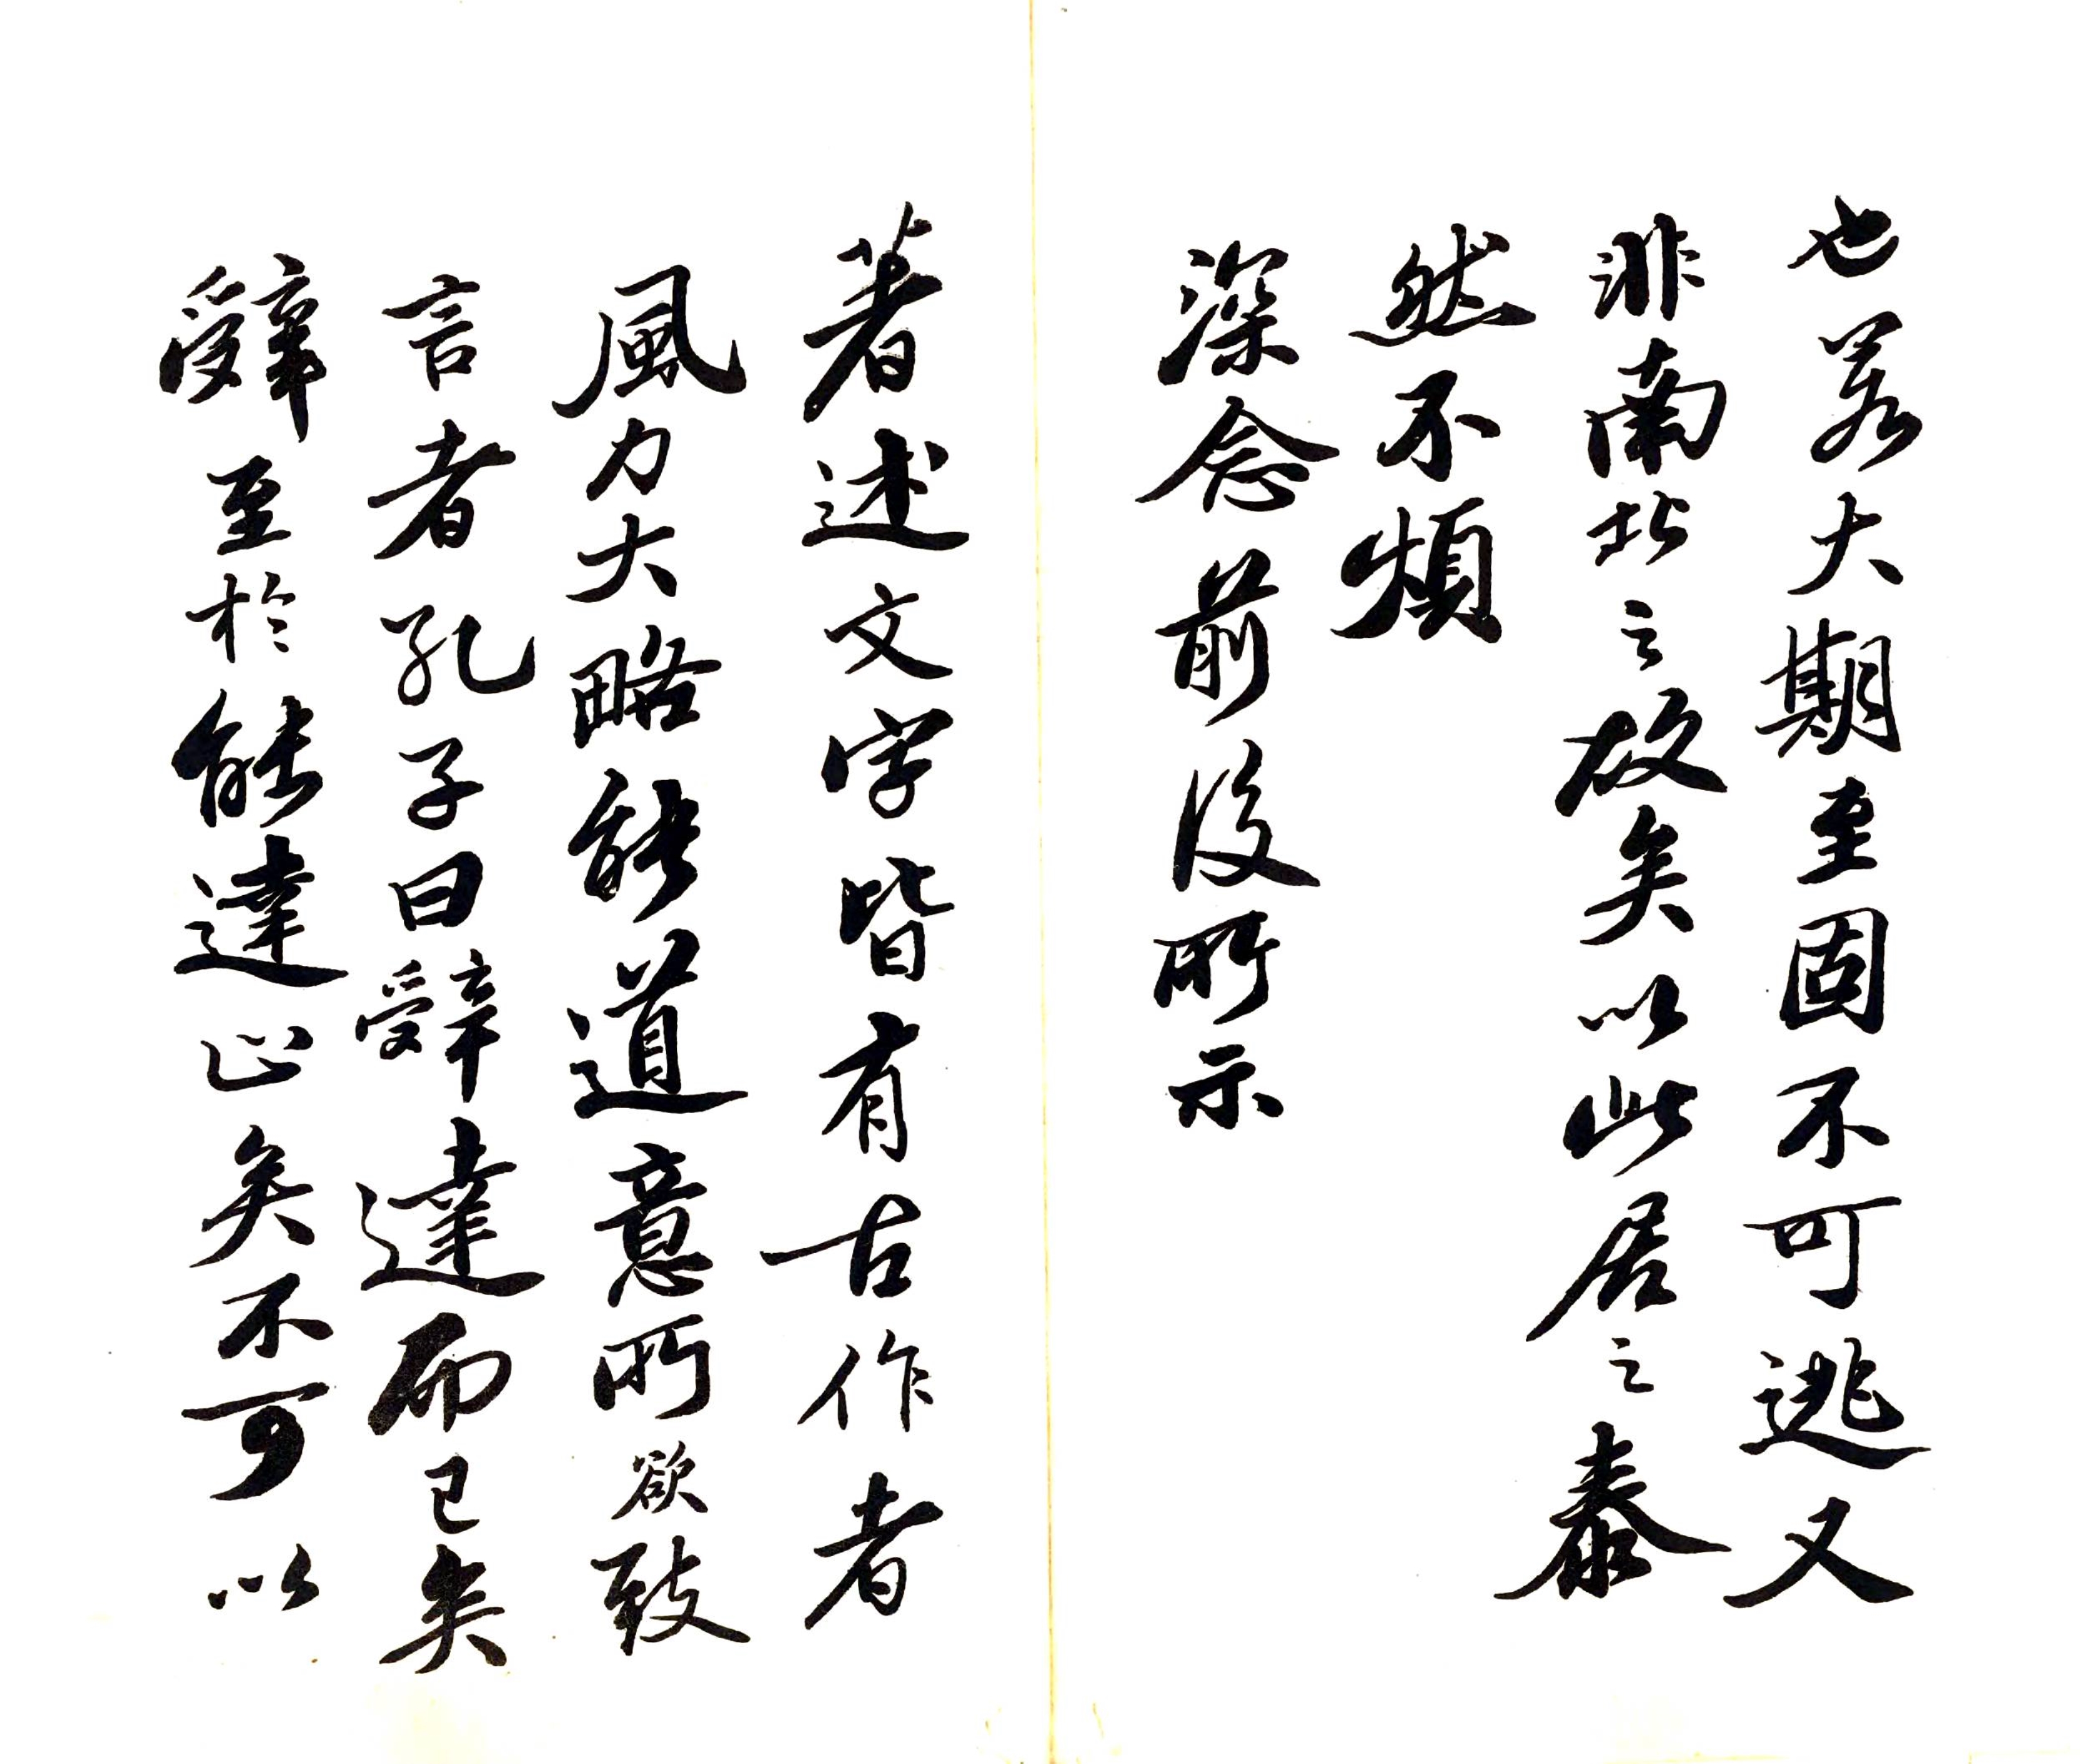 也若大期至固不可逃又
非南北之故矣以此居之泰
然不煩
深念前後所示
著述文字皆有古作者
風力大略能道意所欲致
言者孔子曰辭達而已矣
辭至於能達止矣不可以